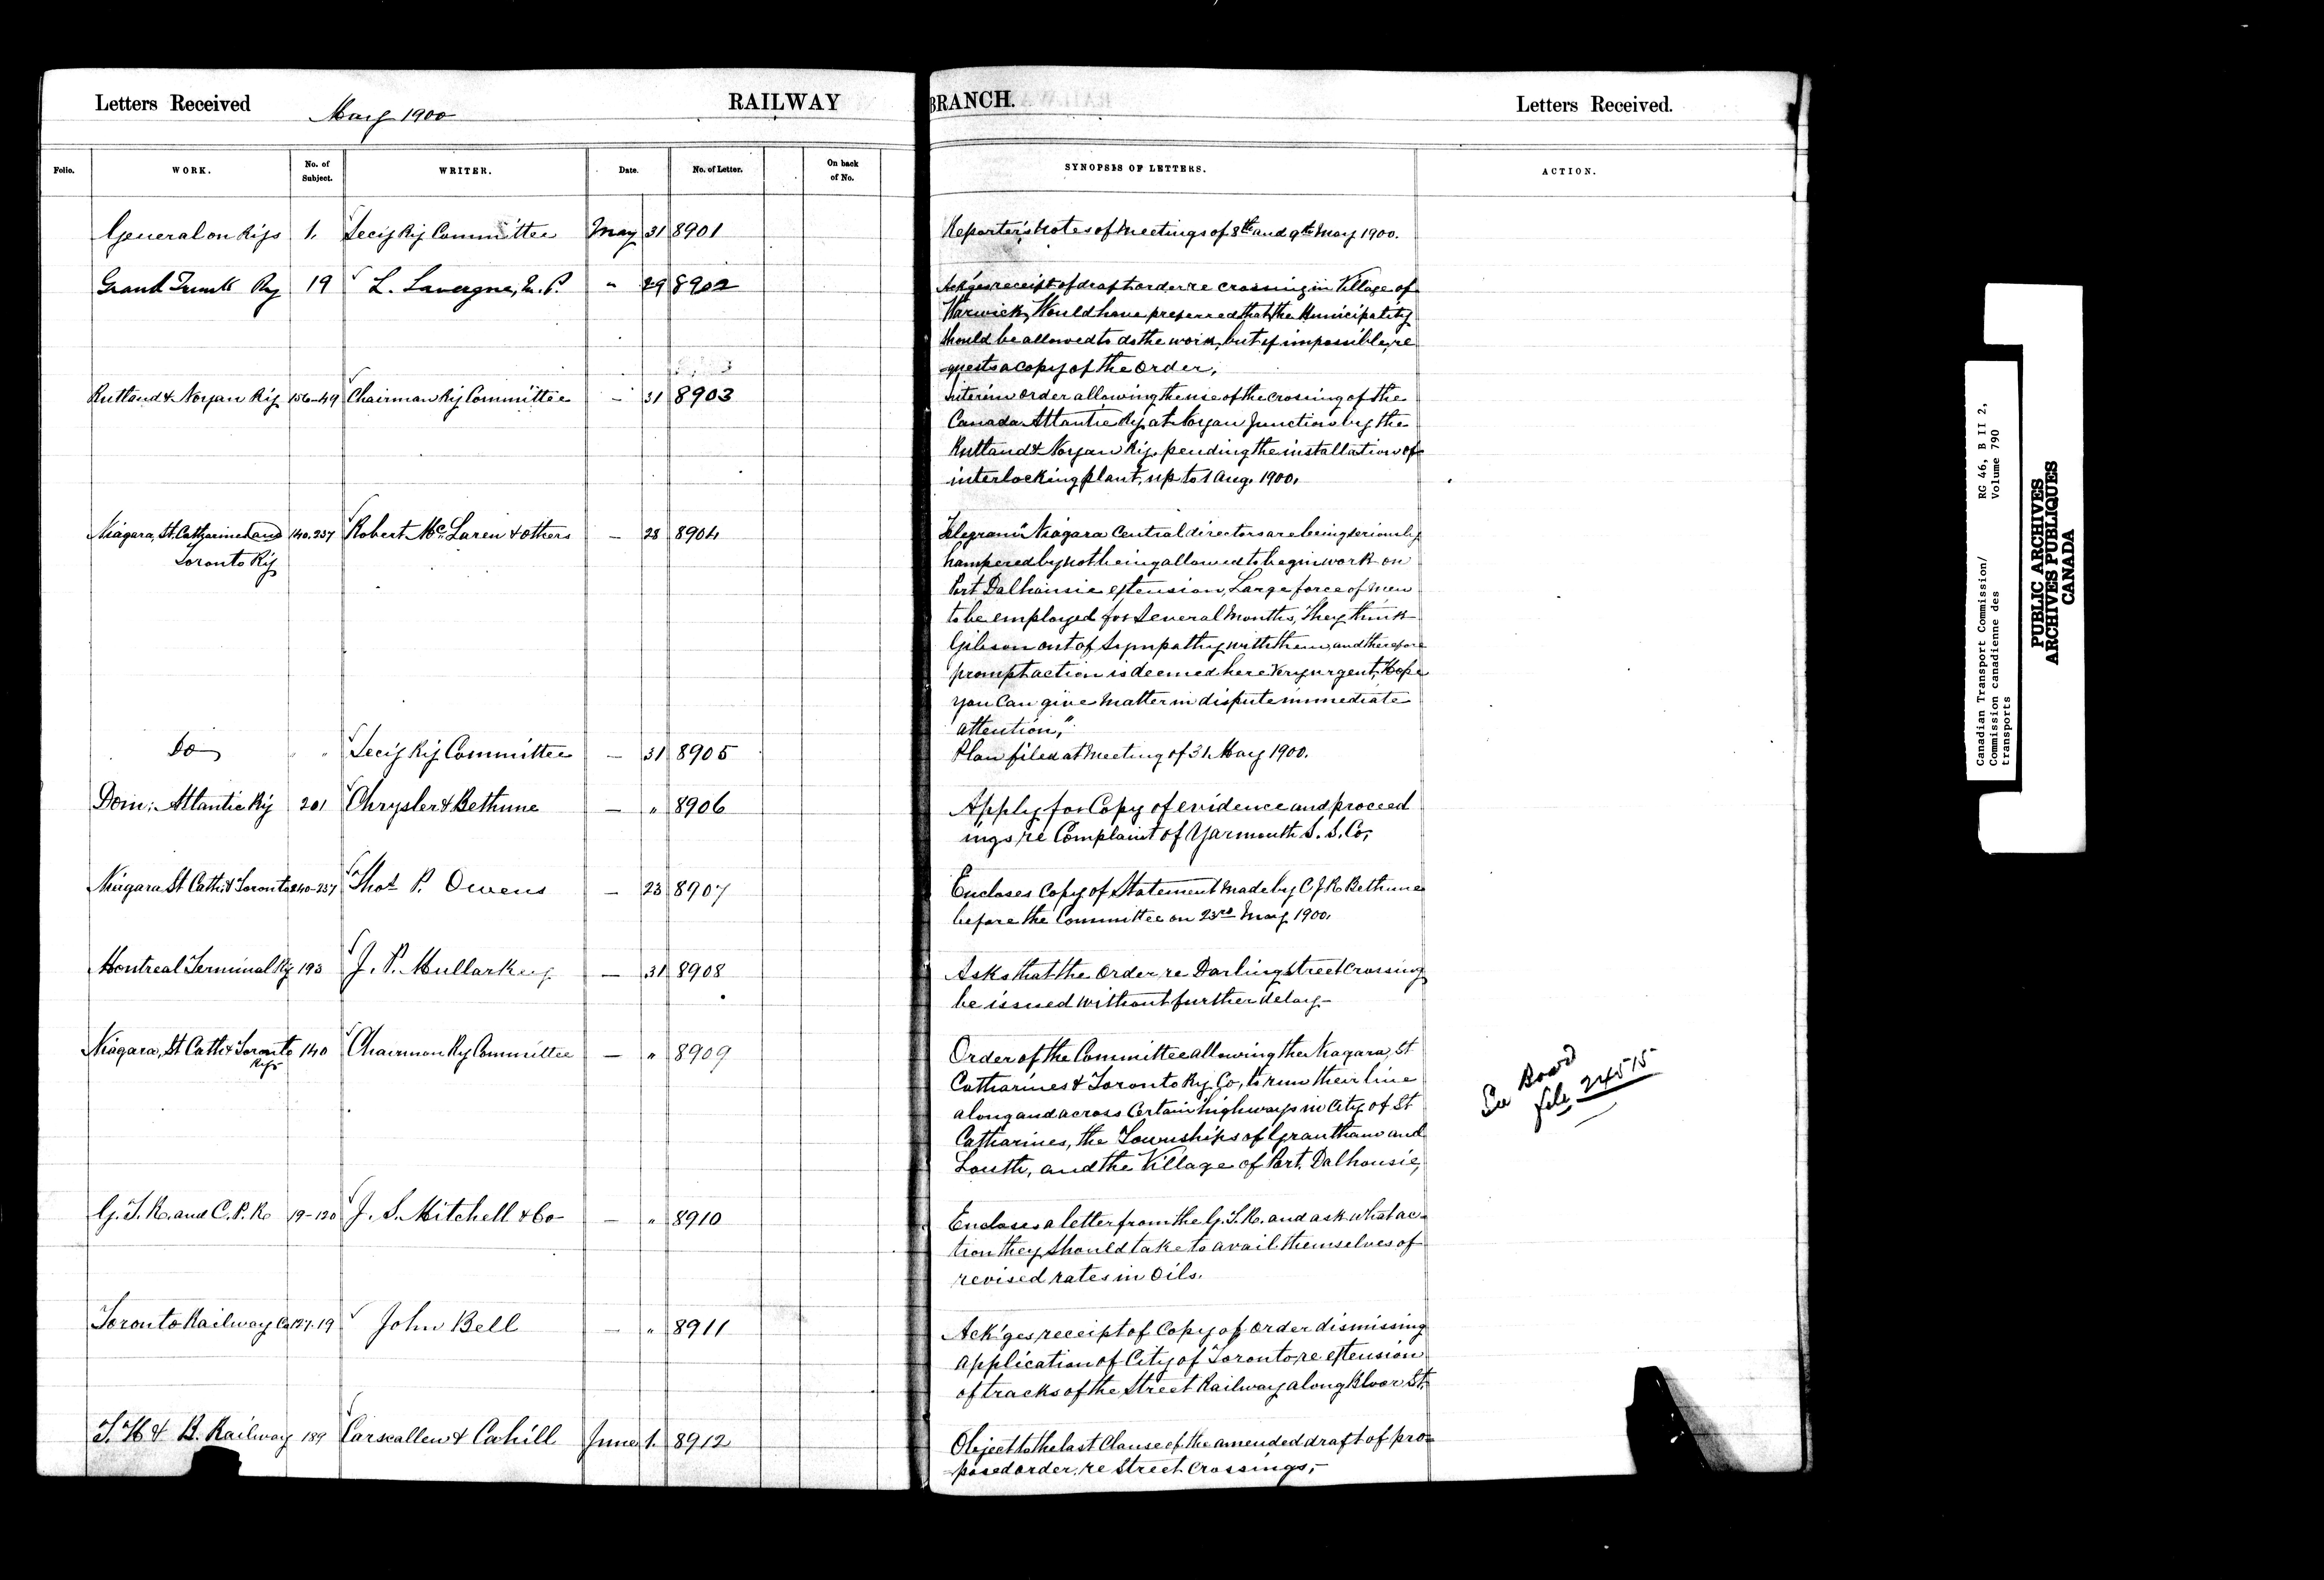 Letters Received
May 1900
RAILWAY
BRANCH.
Letters Received.
Folio.
WORK.
No. of Subject.
WRITER.
Date.
No. of Letter.
On back of No.
SYNOPSIS OF LETTERS.
ACTION.
General on Rys 1. Secy Ry Committee May 31 8901
Reporter's notes of Meetings of 8th and 9th May 1900.
Grand Trunk Ry 19 L. Lavergne, M.P. " 29 8902
Ack'ges receipt of draft order re crossing in Village of
Warwick, Would have preferred that the Municipality
should be allowed to do the work, but if impossible, re
-quests a copy of the order.
Rutland & Noyan Ry 156-49 Chairman Ry Committee " 31 8903
Interim order allowing the use of the crossing of the
Canada Atlantic Ry. at Noyan Junction by the
Rutland & Noyan Ry. pending the installation of
interlocking plant, up to 1 Aug. 1900.
Niagara, St. Catharines and 140.237 Robert McLaren & others — 28 8904
Toronto Ry
Telegram "Niagara Central directors are being seriously
hampered by not being allowed to begin work on
Port Dalhousie extension, Large force of men
to be employed for several months, They think
Gibson out of sympathy with them, and therefore
prompt action is deemed here very urgent, Hope
you can give matter in dispute immediate
attention,"
Do " " Secy Ry Committee — 31 8905
Plan filed at Meeting of 31. May 1900.
Dom: Atlantic Ry 201 Chrysler & Bethune — " 8906
Apply for Copy of evidence and proceed
ings re Complaint of Yarmouth S. S. Co,
Niagara St Cath: & Toronto 240-237 Thos P. Owens — 23 8907
Encloses Copy of Statement made by C.J.R. Bethune
before the Committee on 23rd May 1900.
Montreal Terminal Ry 193 J. P. Mullarkey — 31 8908
Asks that the Order re Darling Street Crossing
be issued without further delay-
Niagara, St Cath & Toronto 140 Chairman Ry Committee — " 8909
Rys
Order of the Committee allowing the Niagara, St
Catharines & Toronto Ry Co, to run their line
along and across Certain highways in City of St
Catharines, the Townships of Grantham and
Louth, and the Village of Port Dalhousie,
See Board
file 24515
G.T.R. and C.P.R 19-120 J. S. Mitchell & Co — " 8910
Encloses a letter from the G.T.R. and ask what ac-
tion they should take to avail themselves of
revised rates in Oils.
Toronto Railway Co 127.19 John Bell — " 8911
Ack'ges receipt of Copy of order dismissing
application of City of Toronto, re extension
of tracks of the Street Railway along Bloor St.
T. H & B. Railway 189 Carscallen & Cahill June 1. 8912
Object to the last Clause of the amended draft of pro-
posed order, re Street Crossings,-
Canadian Transport Commission/
Commission canadienne des
transports
RG 46, B II 2,
Volume 790
PUBLIC ARCHIVES
ARCHIVES PUBLIQUES
CANADA